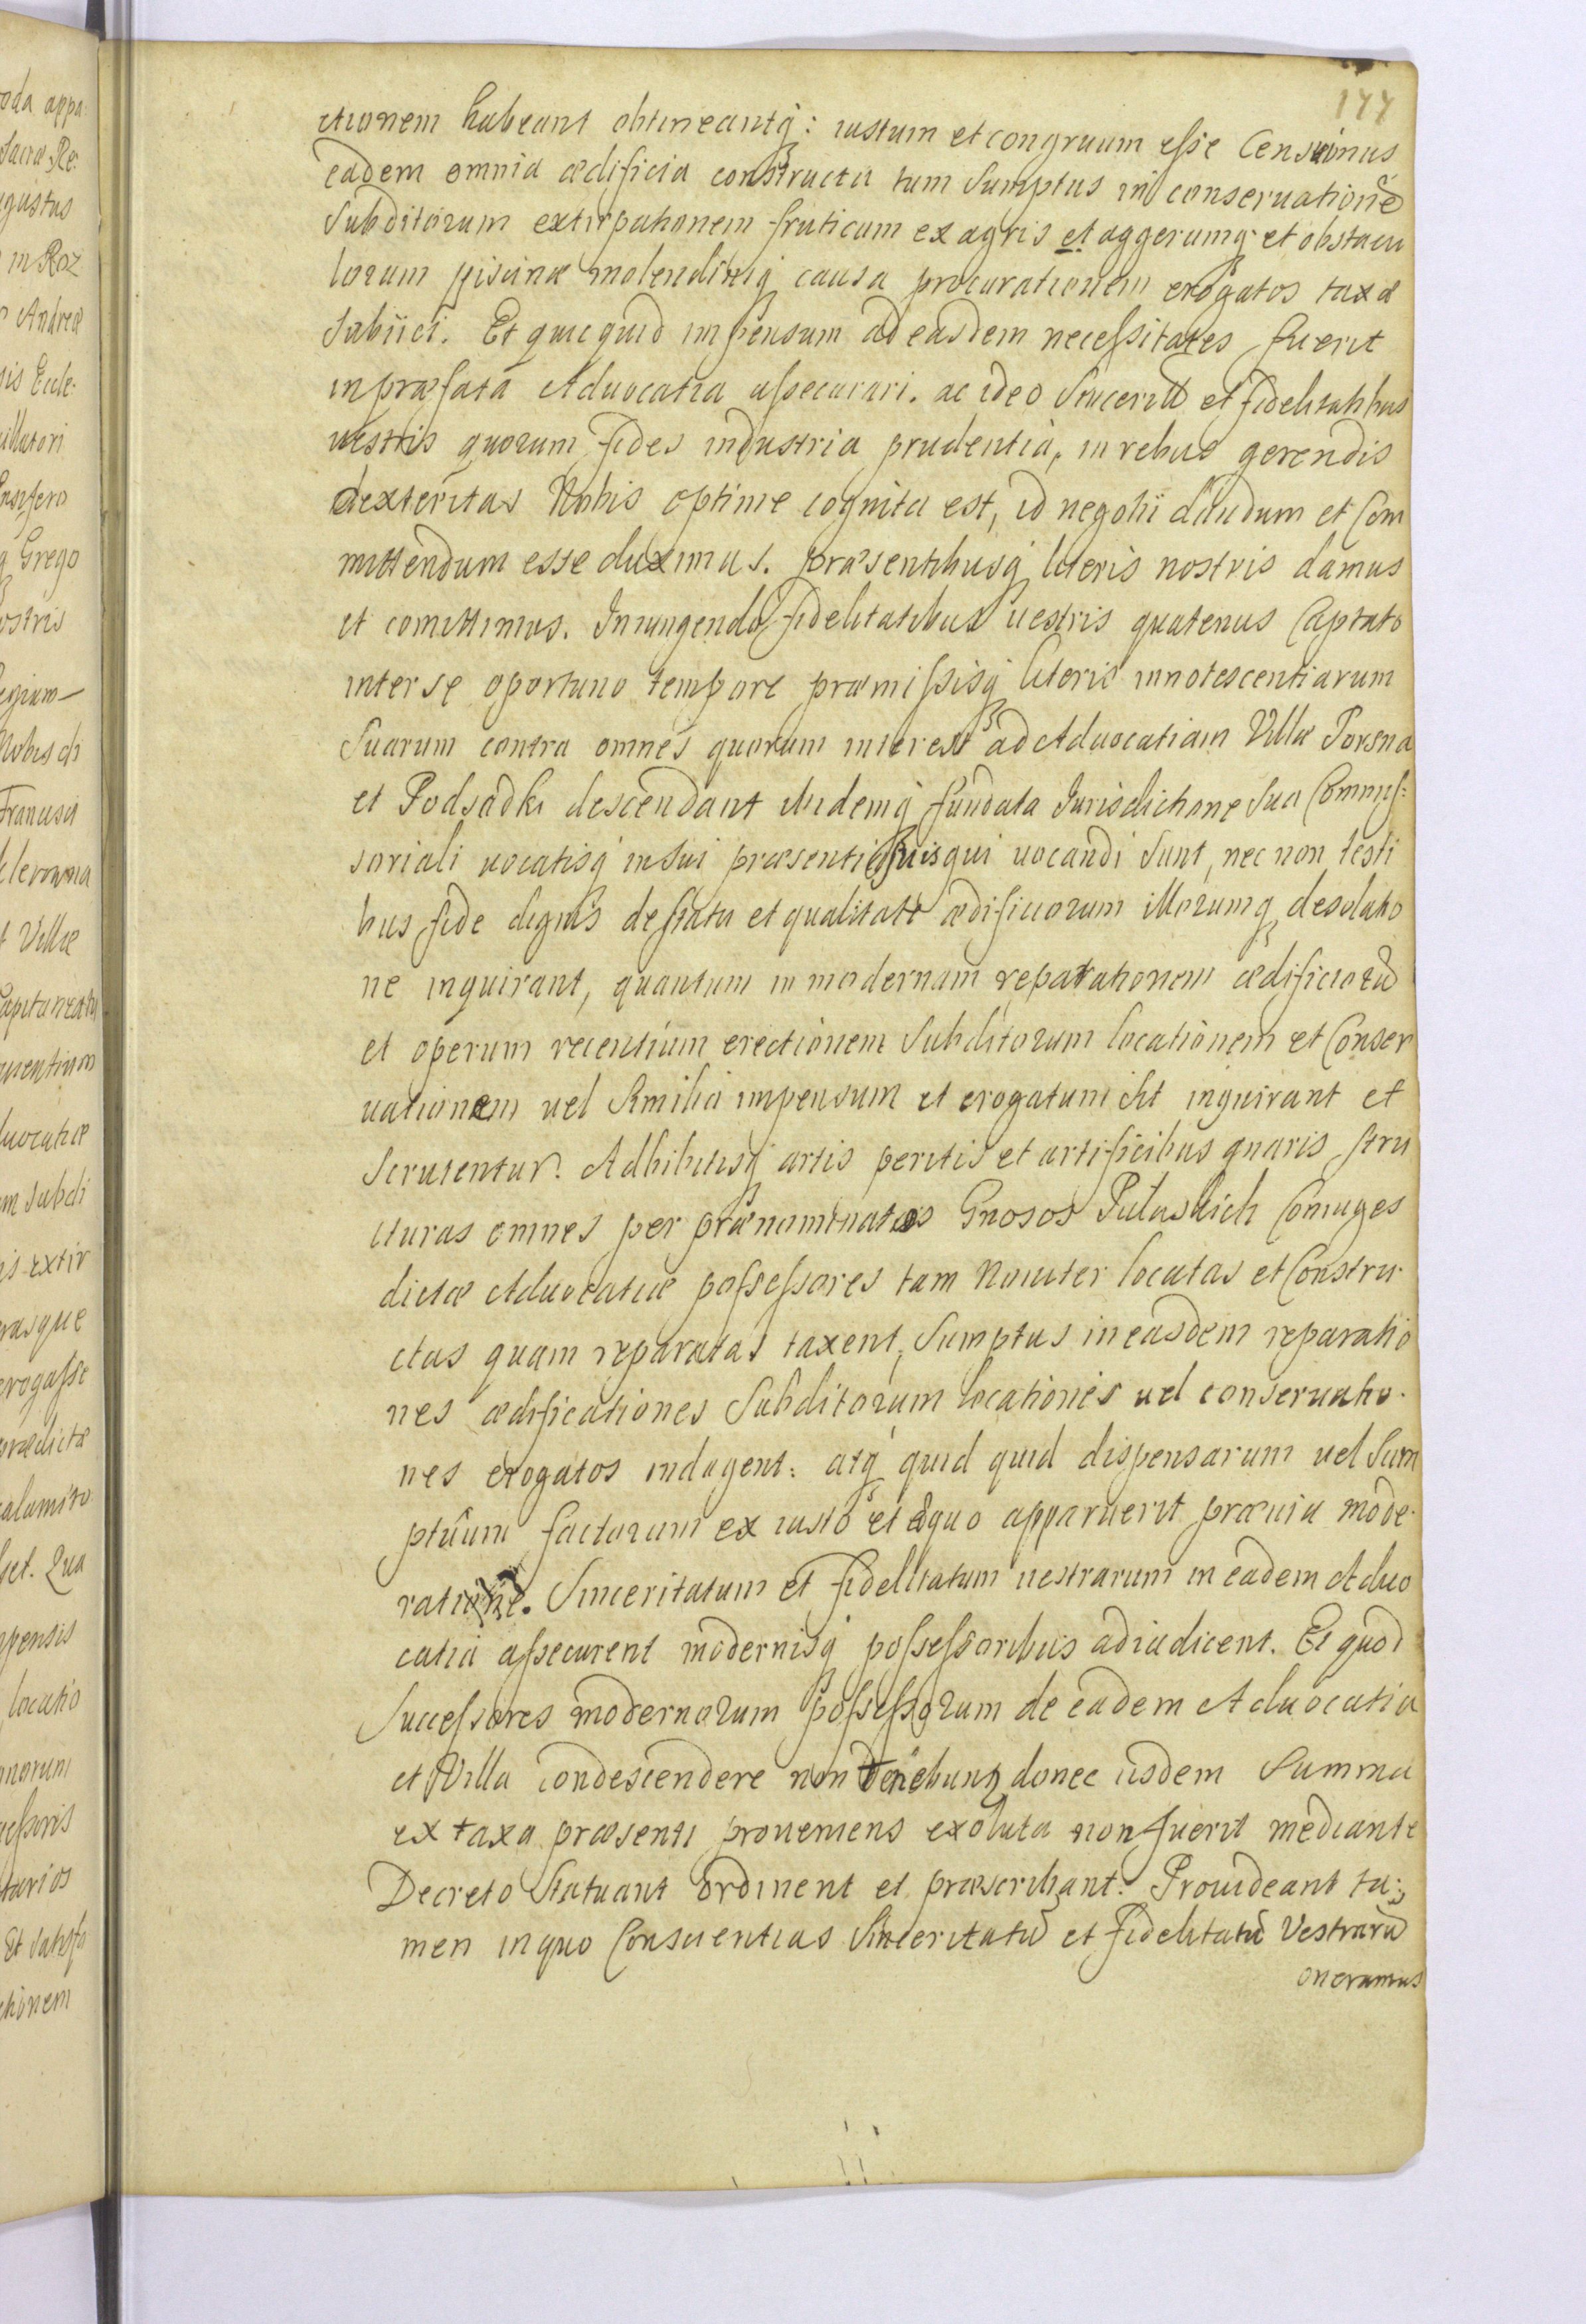 177
ctionem habeant obtineantq: iustum et congruum esse Censuimus
eadem omnia ædificia constructa tum Sumptus in conseruationē
Subditorum extirpationem fruticum ex agris et aggerumq et obstacu
lorum piscinæ molendiniq causa procurationem erogatos taxæ
Subiici. Et quicquid impensum ad easdem necessitates fuerit
in præfata Aduocatia assecurari. ac ideo Sincerit̄t et fidelitatibus
uestris quorum fides industria prudentia, in rebus gerendis
dexteritas Nobis optime cognita est, id negotii dandum et Com
mittendum esse duximus. præsentibusq literis nostris damus
et comittimus. Iniungendo fidelitatibus uestris quatenus Captato
inter se oportuno tempore præmissisq literis innotescentiarum
Suarum contra omnes quorum interest ad Aduocatiam Villæ Porsna
et Podsadki descendant ibidemq fundata Jurisdictione Sua Commis:
soriali uocatisq in sui præsentia suis qui uocandi Sunt, nec non testi
bus fide dignis de statu et qualitate ædificiorum illorumq desolatio
ne inquirant, quantum in modernam reparationem ædificiorū
et operum recentium erectionem Subditorum locationem et Conser
uationem uel Similia impensum et erogatum sit inquirant et
Scrutentur. Adhibitisq artis peritis et artificibus gnaris stru
cturas omnes per prænominatos Gnosos Pulaskich Coniuges
dictæ Aduocatiæ possessores tam Nouiter locatas et Constru
ctas quam reparatas taxent, Sumptus in easdem reparatio
nes ædificationes Subditorum locationes uel conseruatio
nes erogatos indagent: atq quid quid dispensarum uel Sum
ptuum factorum ex iusto et æquo apparuerit præuia mode
ratione. Sinceritatum et fidelitatum uestrarum in eadem Aduo
catia assecurent modernisq possessoribus adiudicent. Et quod
Successores modernorum possessorum de eadem Aduocatia
et Villa condescendere non tenebunt donec iisdem Summa
ex taxa præsenti proueniens exoluta non fuerit mediante
Decreto Statuant ordinent et præscribant. Prouideant ta:
men in quo Conscientias Sinceritatū et Fidelitatū Vestrarū
oneramus